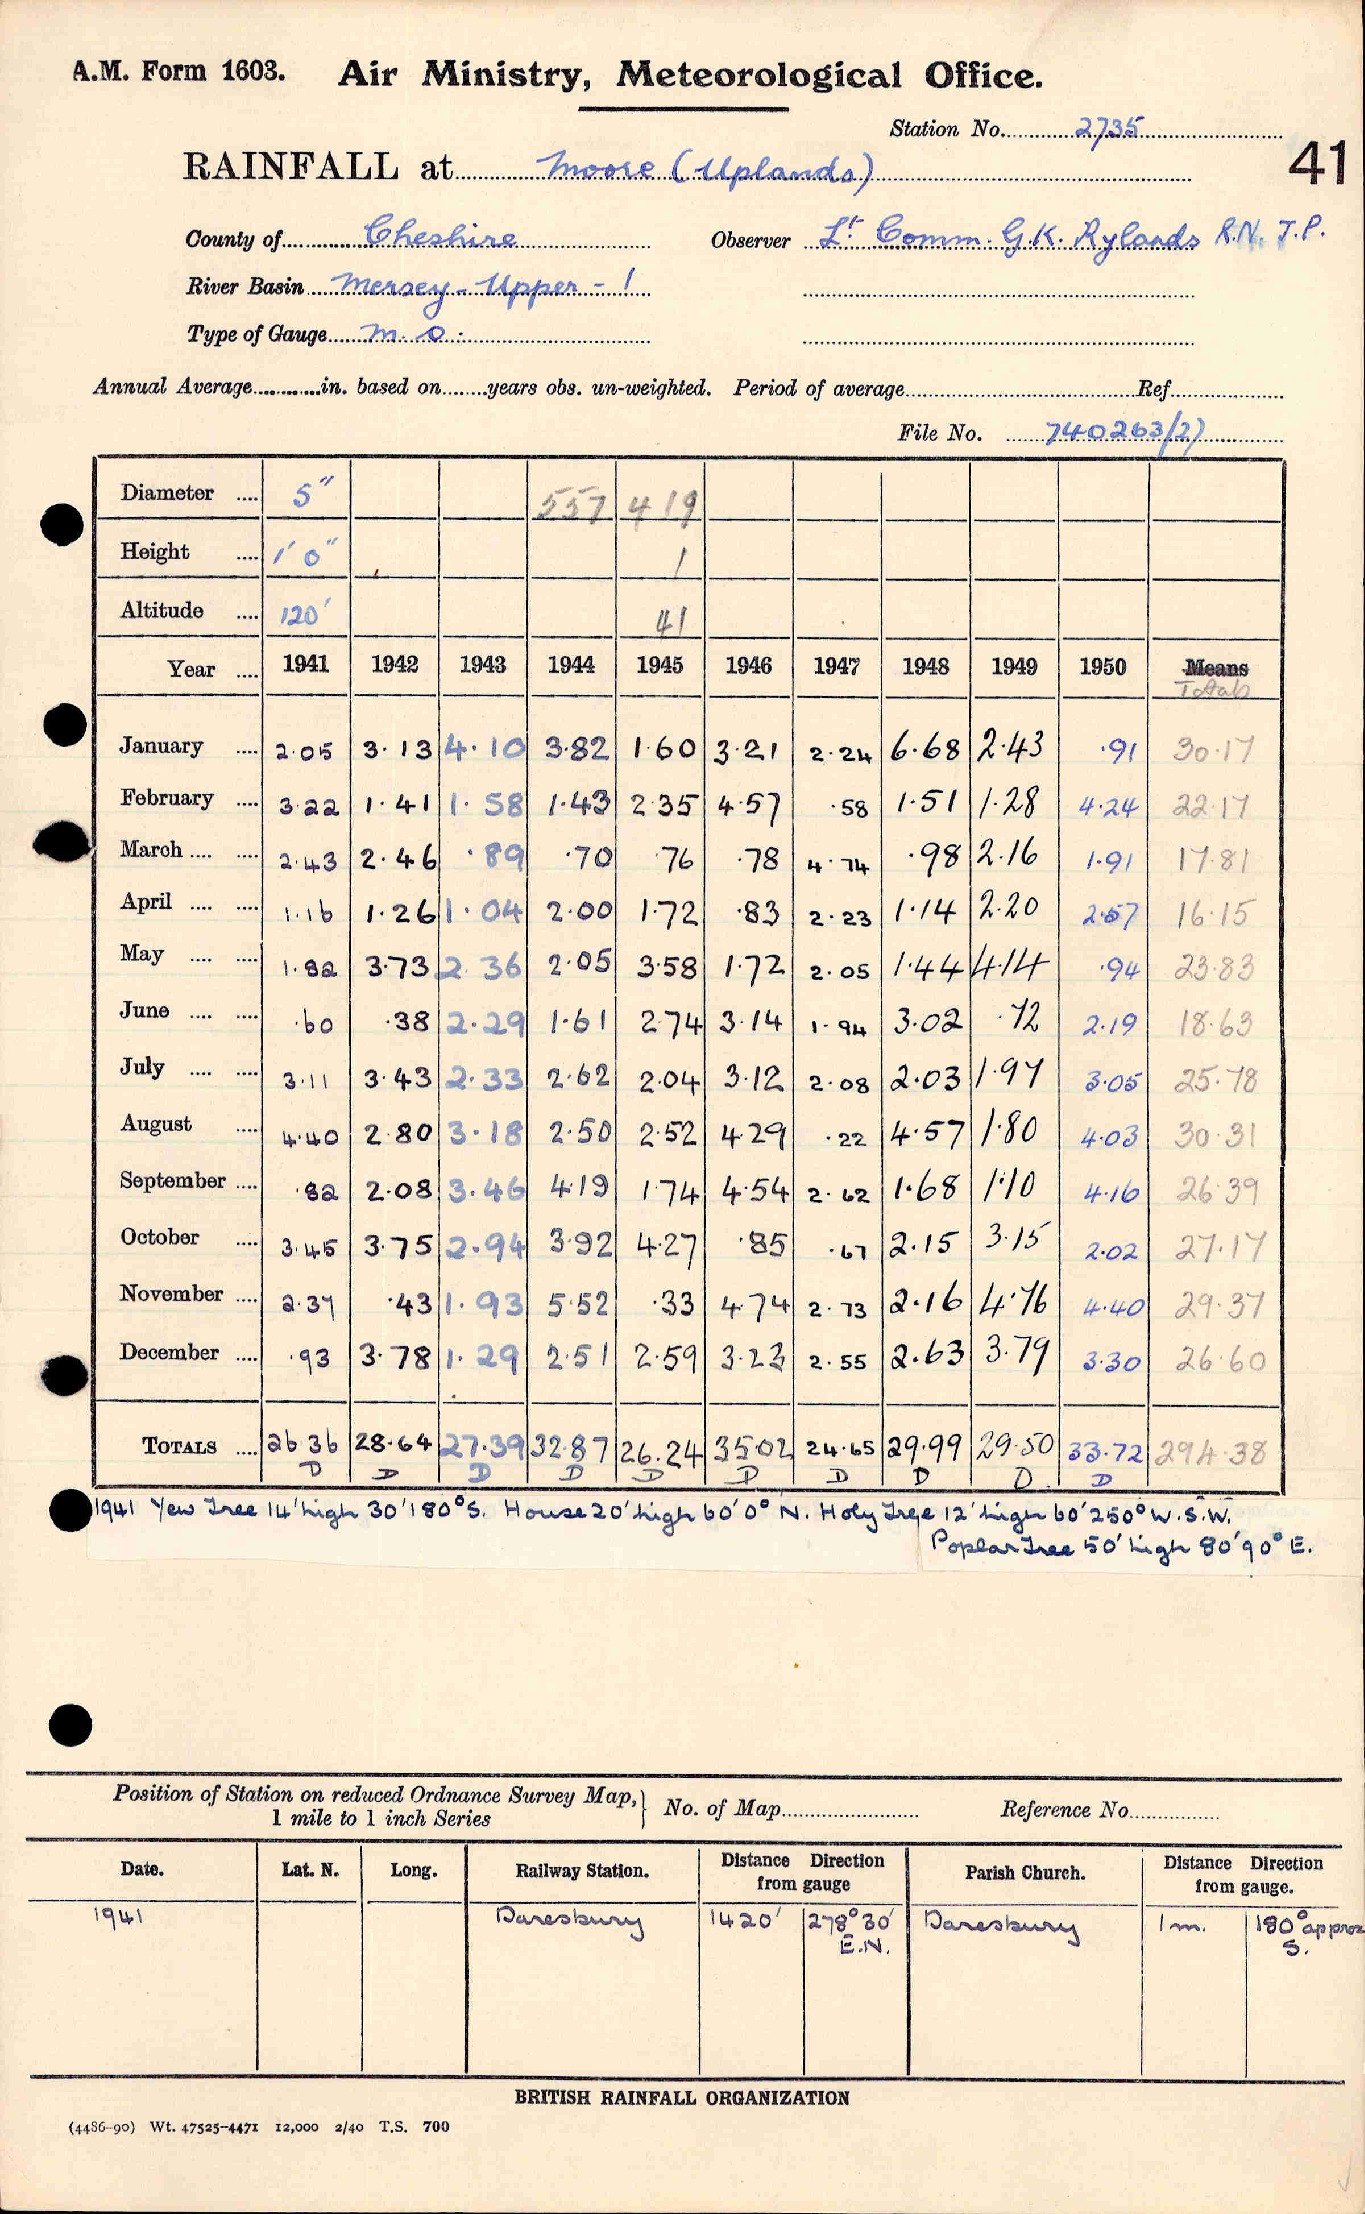 A.M. Form 1603. Air Ministry, Meteorological Office.
Station No. 2735
41
RAINFALL at Moore (Uplands)
County of Cheshire Observer Lt Comm. G.K. Rylands R.N. J.P.
River Basin Mersey - Upper - 1
Type of Gauge M.O.
Annual Average in. based on years obs. un-weighted. Period of average Ref
File No. 740263/27
Diameter 5" 557 419
Height 1' 0" 1
Altitude 120' 41
Year 1941 1942 1943 1944 1945 1946 1947 1948 1949 1950 Means
Totals
January 2.05 3.13 4.10 3.82 1.60 3.21 2.24 6.68 2.43 .91 30.17
February 3.22 1.41 1.58 1.43 2.35 4.57 .58 1.51 1.28 4.24 22.17
March 2.43 2.46 .89 .70 .76 .78 4.74 .98 2.16 1.91 17.81
April 1.16 1.26 1.04 2.00 1.72 .83 2.23 1.14 2.20 2.57 16.15
May 1.82 3.73 2.36 2.05 3.58 1.72 2.05 1.44 4.14 .94 23.83
June .60 .38 2.29 1.61 2.74 3.14 1.94 3.02 .72 2.19 18.63
July 3.11 3.43 2.33 2.62 2.04 3.12 2.08 2.03 1.97 3.05 25.78
August 4.40 2.80 3.18 2.50 2.52 4.29 .22 4.57 1.80 4.03 30.31
September .82 2.08 3.46 4.19 1.74 4.54 2.62 1.68 1.10 4.16 26.39
October 3.45 3.75 2.94 3.92 4.27 .85 .67 2.15 3.15 2.02 27.17
November 2.37 .43 1.93 5.52 .33 4.74 2.73 2.16 4.76 4.40 29.37
December .93 3.78 1.29 2.51 2.59 3.23 2.55 2.63 3.79 3.30 26.60
TOTALS 26.36 28.64 27.39 32.87 26.24 35.02 24.65 29.99 29.50 33.72 294.38
D D D D D D D D D D
1941 Yew Tree 14' high 30' 180° S. House 20' high 60' 0° N. Holy Tree 12' high 60' 250° W.S.W.
Poplar Tree 50' high 80' 90° E.
Position of Station on reduced Ordnance Survey Map, 1 mile to 1 inch Series No. of Map Reference No.
Date. Lat. N. Long. Railway Station. Distance Direction from gauge Parish Church. Distance Direction from gauge.
1941 Daresbury 1420' 278° 30' Daresbury 1 m. 180° approx
E.N. S.
BRITISH RAINFALL ORGANIZATION
(4486-90) Wt. 47525-4471 12,000 2/40 T.S. 700